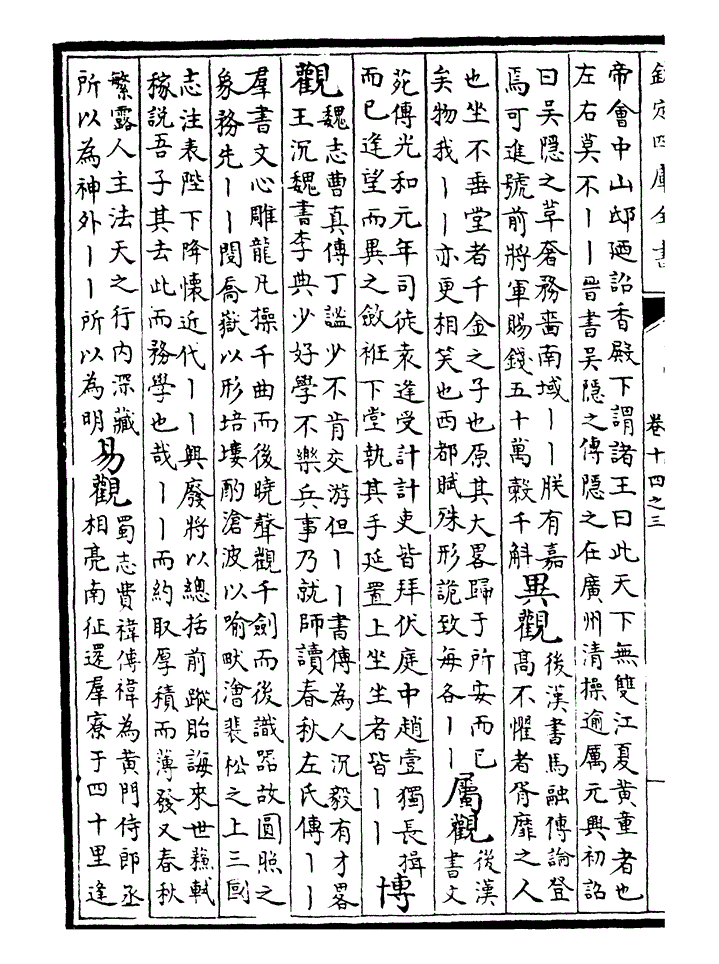 欽定四庫全書
卷十四之三
帝會中山邸廼詔香殿下謂諸王曰此天下無雙江夏黃童者也
左右莫不丨丨晉書吳隱之傳隱之在廣州清操逾厲元興初詔
曰吳隱之革奢務嗇南域丨丨朕有嘉
焉可進號前將軍賜錢五十萬穀千斛
異觀
後漢書馬融傳論登
高不懼者胥靡之人
也坐不垂堂者千金之子也原其大畧歸于所安而已
矣物我丨丨亦更相笑也西都賦殊形詭致每各丨丨
屬觀
後漢
書文
苑傳光和元年司徒袁逢受計計吏皆拜伏庭中趙壹獨長揖
而已逢望而異之斂衽下堂執其手延置上坐坐者皆丨丨
博
觀
魏志曹真傳丁謐少不肯交游但丨丨書傳為人沉毅有才畧
王沉魏書李典少好學不樂兵事乃就師讀春秋左氏傳丨丨
羣書文心雕龍凡操千曲而後曉聲觀千劍而後識器故圓照之
象務先丨丨閱喬嶽以形培塿酌滄波以喻畎澮裴松之上三國
志注表陛下降懷近代丨丨興廢將以總括前蹤貽誨來世蘇軾
稼說吾子其去此而務學也哉丨丨而約取厚積而薄發又春秋
繁露人主法天之行內深藏
所以為神外丨丨所以為明
易觀
蜀志費禕傳禕為黃門侍郎丞
相亮南征還羣寮于四十里逢